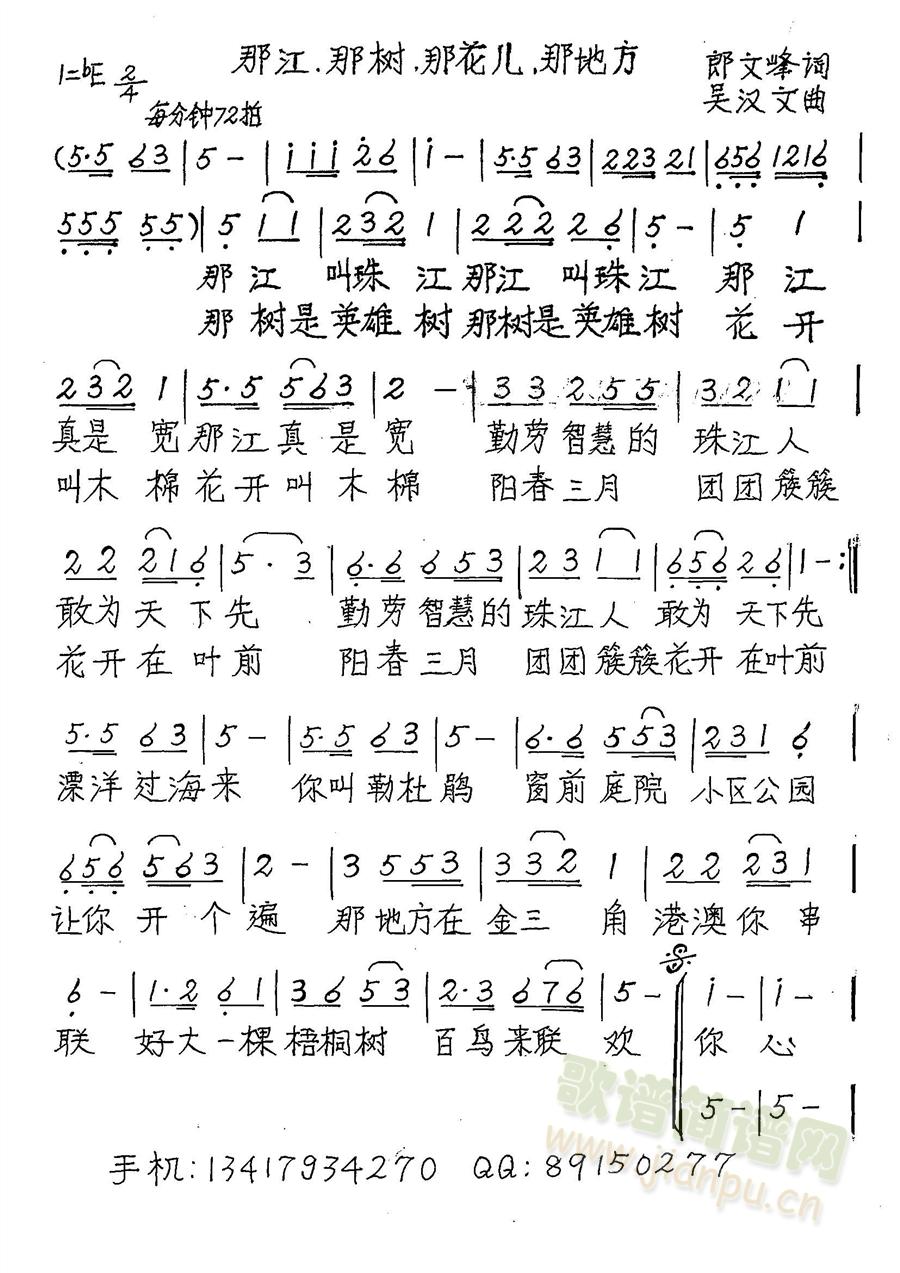 那江、那树、那花儿、那地方
郎文峰词
1=bE 2/4
吴汉文曲
每分钟72拍
(5·5 63|5-|iii 26|i-|5·5 63|223 21|656 1216|
555 55)|5 11|232 1|2222 26|5-|5 1|
那江 叫珠江那江 叫珠江 那江
那树是英雄树那树是英雄树 花开
232 1|5·5 563|2 -|33 255|32 11|
真是宽那江真是宽 勤劳智慧的 珠江人
叫木棉花开叫木棉 阳春三月 团团簇簇
22 216|5·3|6·6 653|23 11|656 26|1-:‖
敢为天下先 勤劳智慧的珠江人 敢为天下先
花开在叶前 阳春三月 团团簇簇花开在叶前
5·5 63|5-|5·5 63|5-|6·6 553|231 6|
漂洋过海来 你叫勒杜鹃 窗前庭院 小区公园
656 563|2-|3 553|332 1|22 231|
让你开个遍 那地方在金三角 港澳你串
6-|1·2 61|36 53|2·3 676|5-‖i-|i-|
联 好大一棵梧桐树 百鸟来联欢 你心
5-|5-|
手机:13417934270 QQ:89150277
歌谱简谱网
www.jianpu.cn